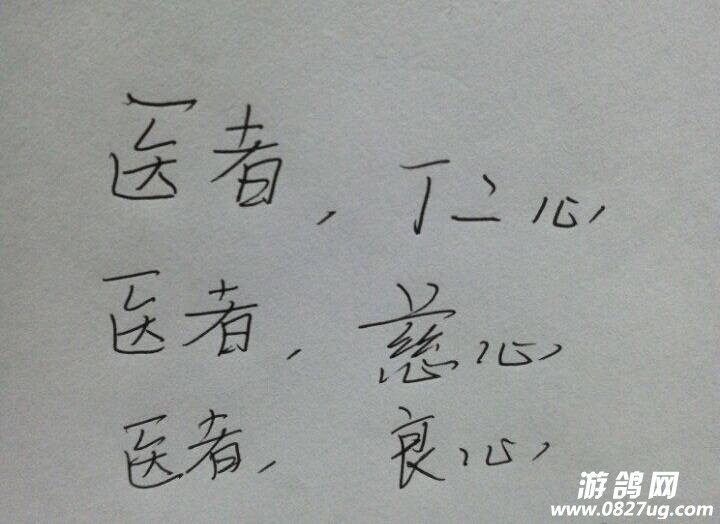 医者，仁心
医者，慈心
医者，良心
游鸽网
www.0827ug.com